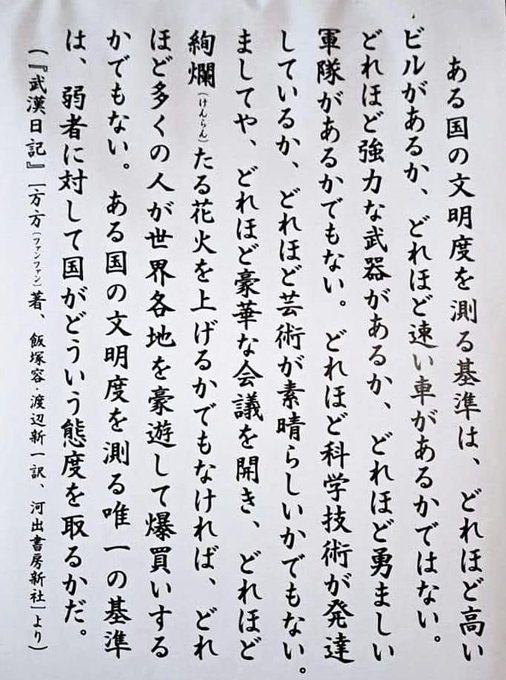 ある国の文明度を測る基準は、どれほど高い
ビルがあるか、どれほど速い車があるかではない。
どれほど強力な武器があるか、どれほど勇ましい
軍隊があるかでもない。どれほど科学技術が発達
しているか、どれほど芸術が素晴らしいかでもない。
ましてや、どれほど豪華な会議を開き、どれほど
絢爛（けんらん）たる花火を上げるかでもなければ、どれ
ほど多くの人が世界各地を豪遊して爆買いする
かでもない。ある国の文明度を測る唯一の基準
は、弱者に対して国がどういう態度を取るかだ。
（『武漢日記』［方方（ファンファン）著、飯塚容・渡辺新一訳、河出書房新社］より）